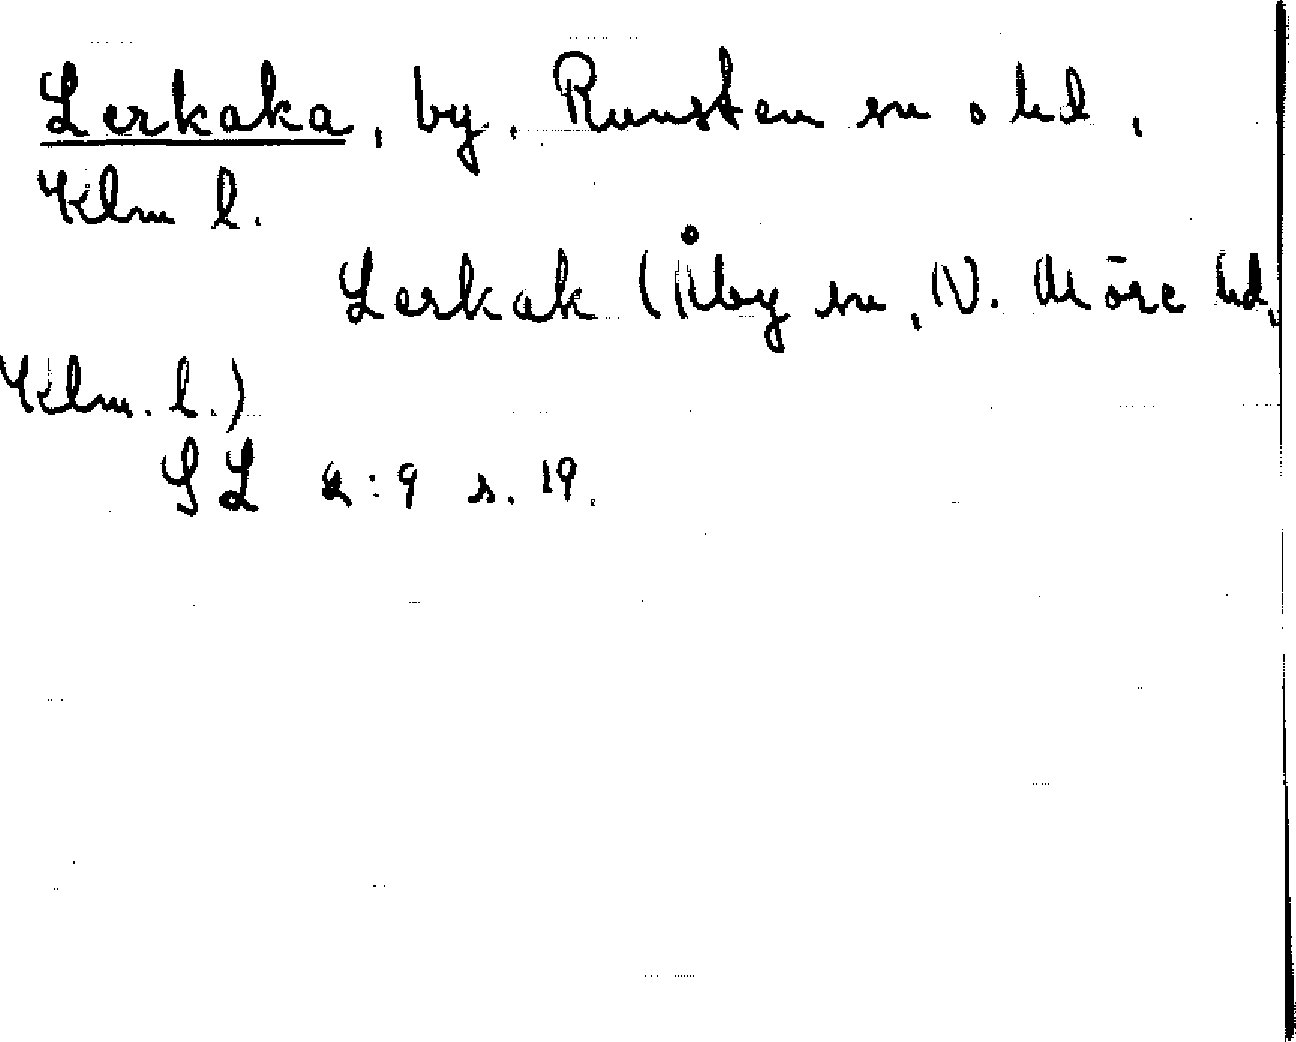 Lerkaka, by, Runsten sn o hd,
Klm l.
Lerkak (Åby sn, N. Möre hd,
Klm. l.)
SL 2:9 s. 19.